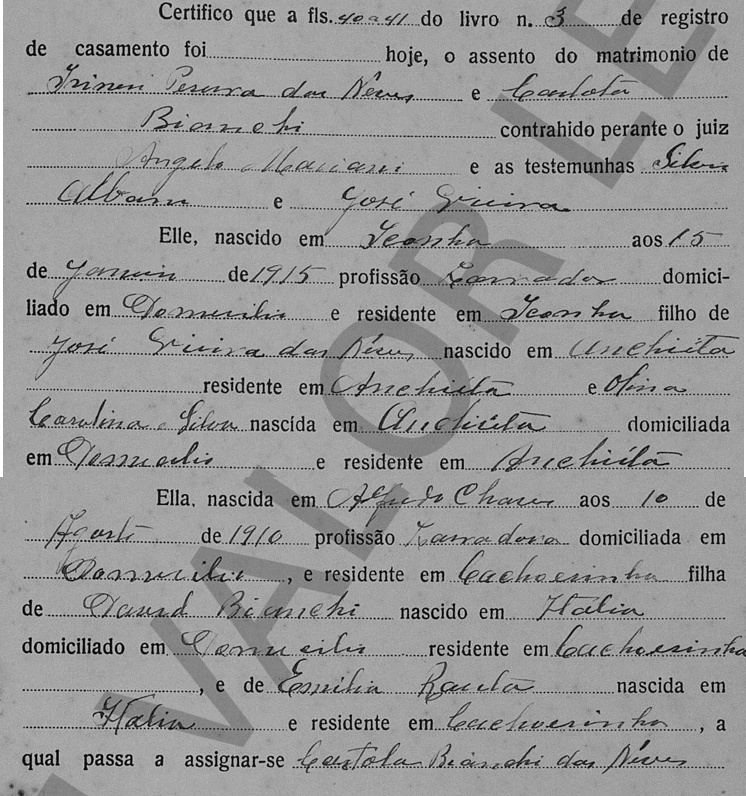 Certifico que a fls. 40 a 41 do livro n. 3 de registro
de casamento foi hoje, o assento do matrimonio de
Irineu Pereira das Neves e Carlota
Bianchi contrahido perante o juiz
Angelo e as testemunhas Silva
e José Vieira
Elle, nascido em Iconha aos 15
de Janeiro de 1915 profissão Lavrador domici-
liado em Domicilio e residente em Iconha filho de
José Vieira das Neves nascido em Anchieta
residente em Anchieta e
Carolina Silva nascida em Anchieta domiciliada
em Domicilio e residente em Anchieta
Ella, nascida em Alfredo Chaves aos 10 de
Agosto de 1910 profissão Lavradora domiciliada em
Domicilio, e residente em Cachoeirinha filha
de David Bianchi nascido em Italia
domiciliado em Domicilio residente em Cachoeirinha
, e de Emilia nascida em
Italia e residente em Cachoeirinha, a
qual passa a assignar-se Carlota Bianchi das Neves
VALOR LE